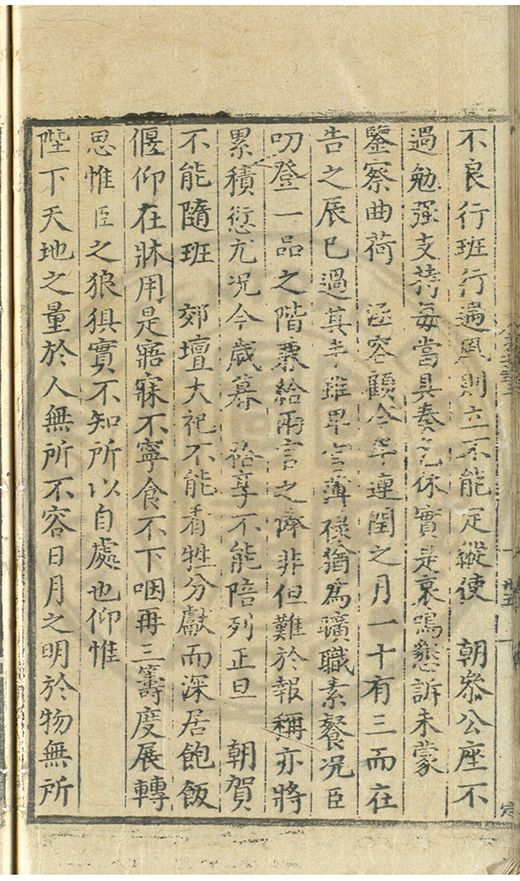 不良行班行過風則立不能定縱使　朝參公座不
過勉强支持每當具奏乞休實是哀鳴懇訴未蒙
鑒察曲荷　涵容顧今年連閏之月一十有三而在
告之辰已過其半雖卑官薄祿猶爲曠職素餐况臣
叨登一品之階票給兩言之俸非但難於報稱亦將
累積愆尤况今歲暮　祫享不能陪列正旦　朝賀
不能隨班　郊壇大祀不能看牲分獻而深居飽飯
偃仰在牀用是寤寐不寧食不下咽再三籌度展轉
思惟臣之狼狽實不知所以自處也仰惟
陛下天地之量於人無所不容日月之明於物無所